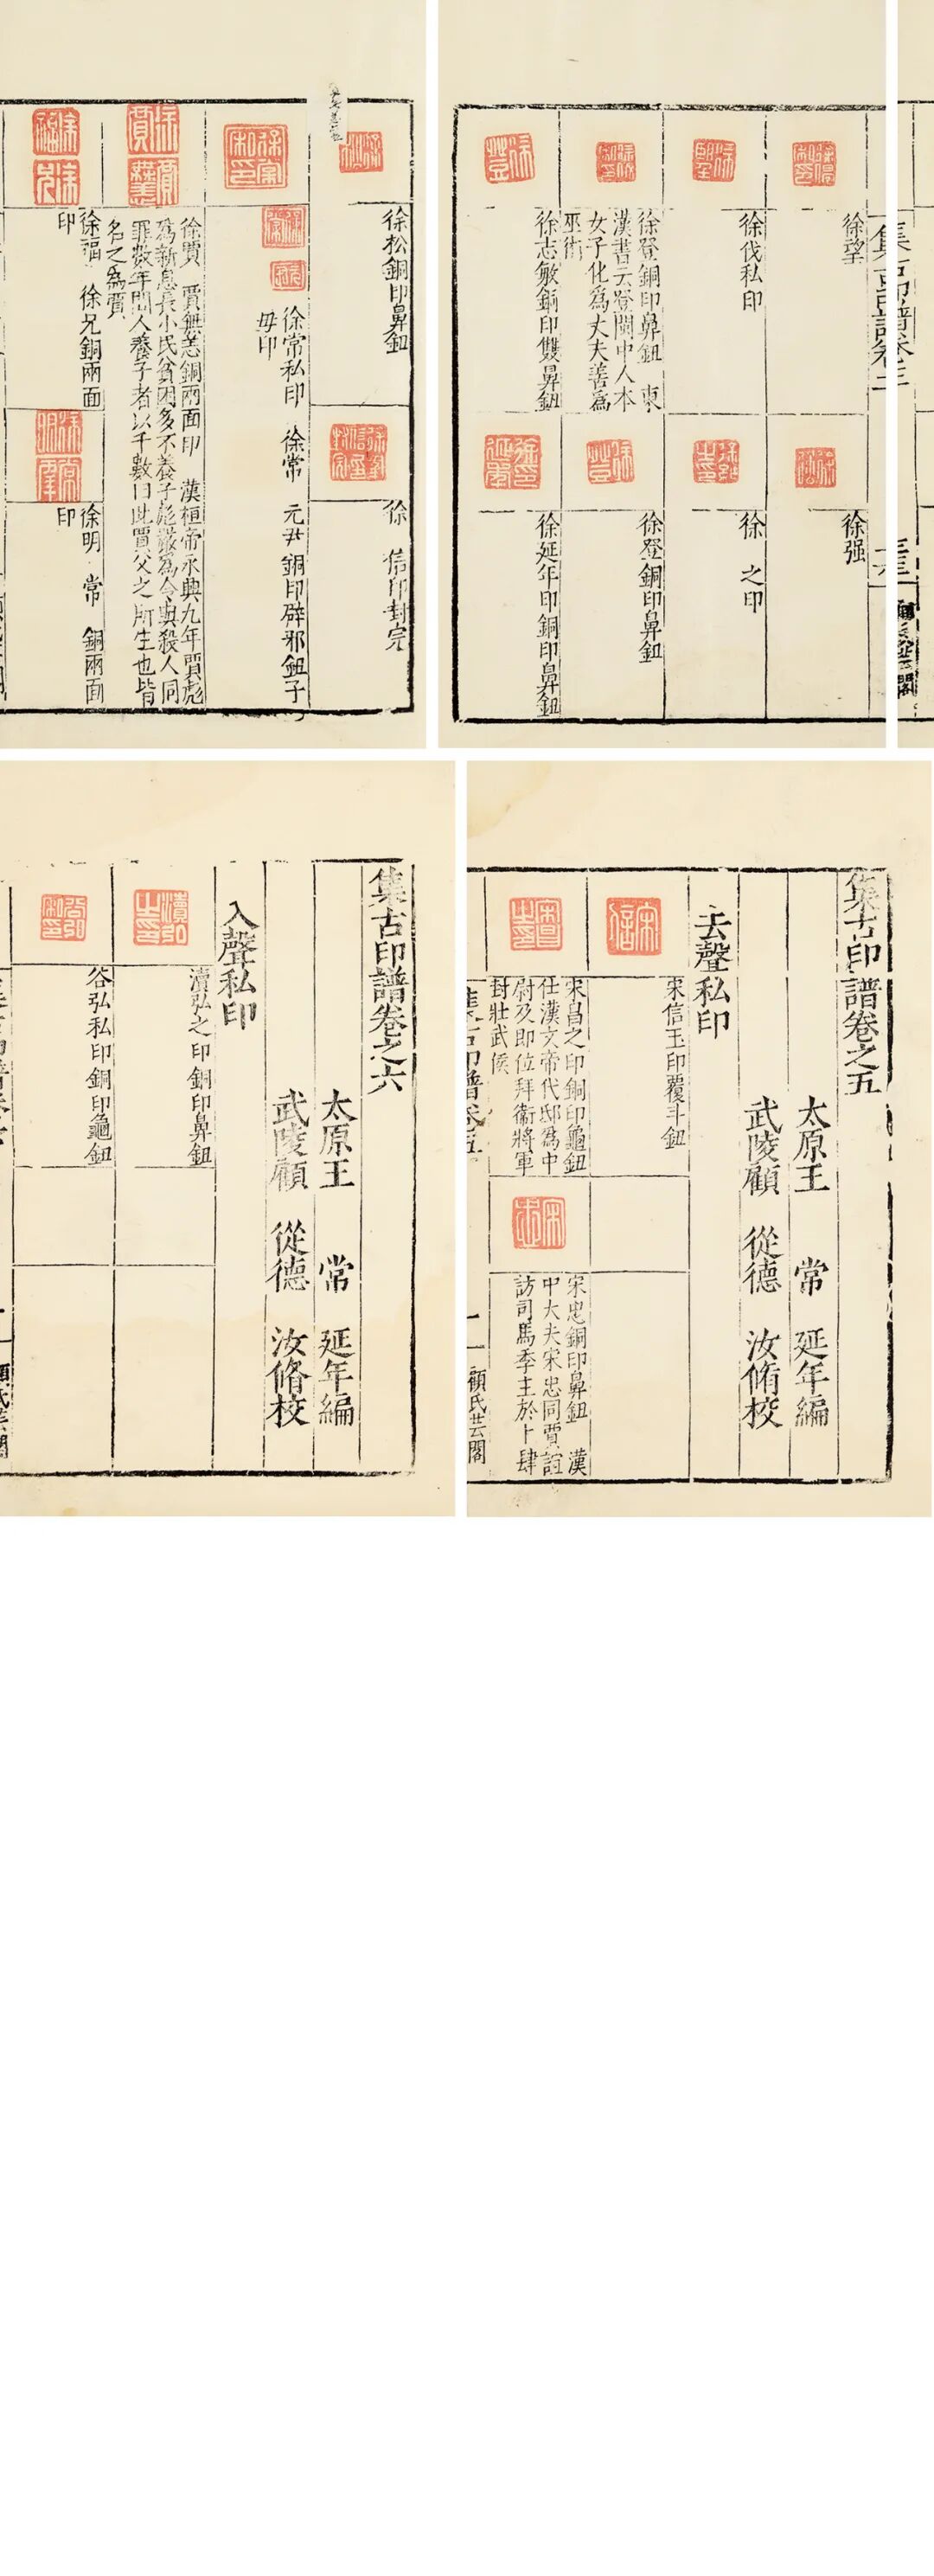 徐松銅印鼻鈕
徐 信印封完
徐常私印 徐常 元尹 銅印辟邪鈕子
毋印
徐賈 賈無恙銅兩面印 漢桓帝永興九年賈彪
為新息長小民貧困多不養子彪嚴為令與殺人同
罪數年間人養子者以千數曰此賈父之所生也皆
名之為賈
徐福 徐兄銅兩面
印
徐明 常 銅兩面
印
集古印譜卷三
徐望
徐强
徐伐私印
徐 之印
徐登銅印鼻鈕 東
漢書云登閩中人本
女子化為丈夫善為
巫術
徐登銅印鼻鈕
徐志敏銅印雙鼻鈕
徐延年印銅印鼻鈕
集古印譜卷之六
太原王 常 延年編
武陵顧 從德 汝脩校
入聲私印
瀆弘之印銅印鼻鈕
谷弘私印銅印龜鈕
集古印譜卷之五
太原王 常 延年編
武陵顧 從德 汝脩校
去聲私印
宋信玉印覆斗鈕
宋昌之印銅印龜鈕
仕漢文帝代邸為中
尉及即位拜衞將軍
封壯武侯
宋忠銅印鼻鈕 漢
中大夫宋忠同賈誼
訪司馬季主於卜肆
集古印譜卷五
一
顧氏芸閣